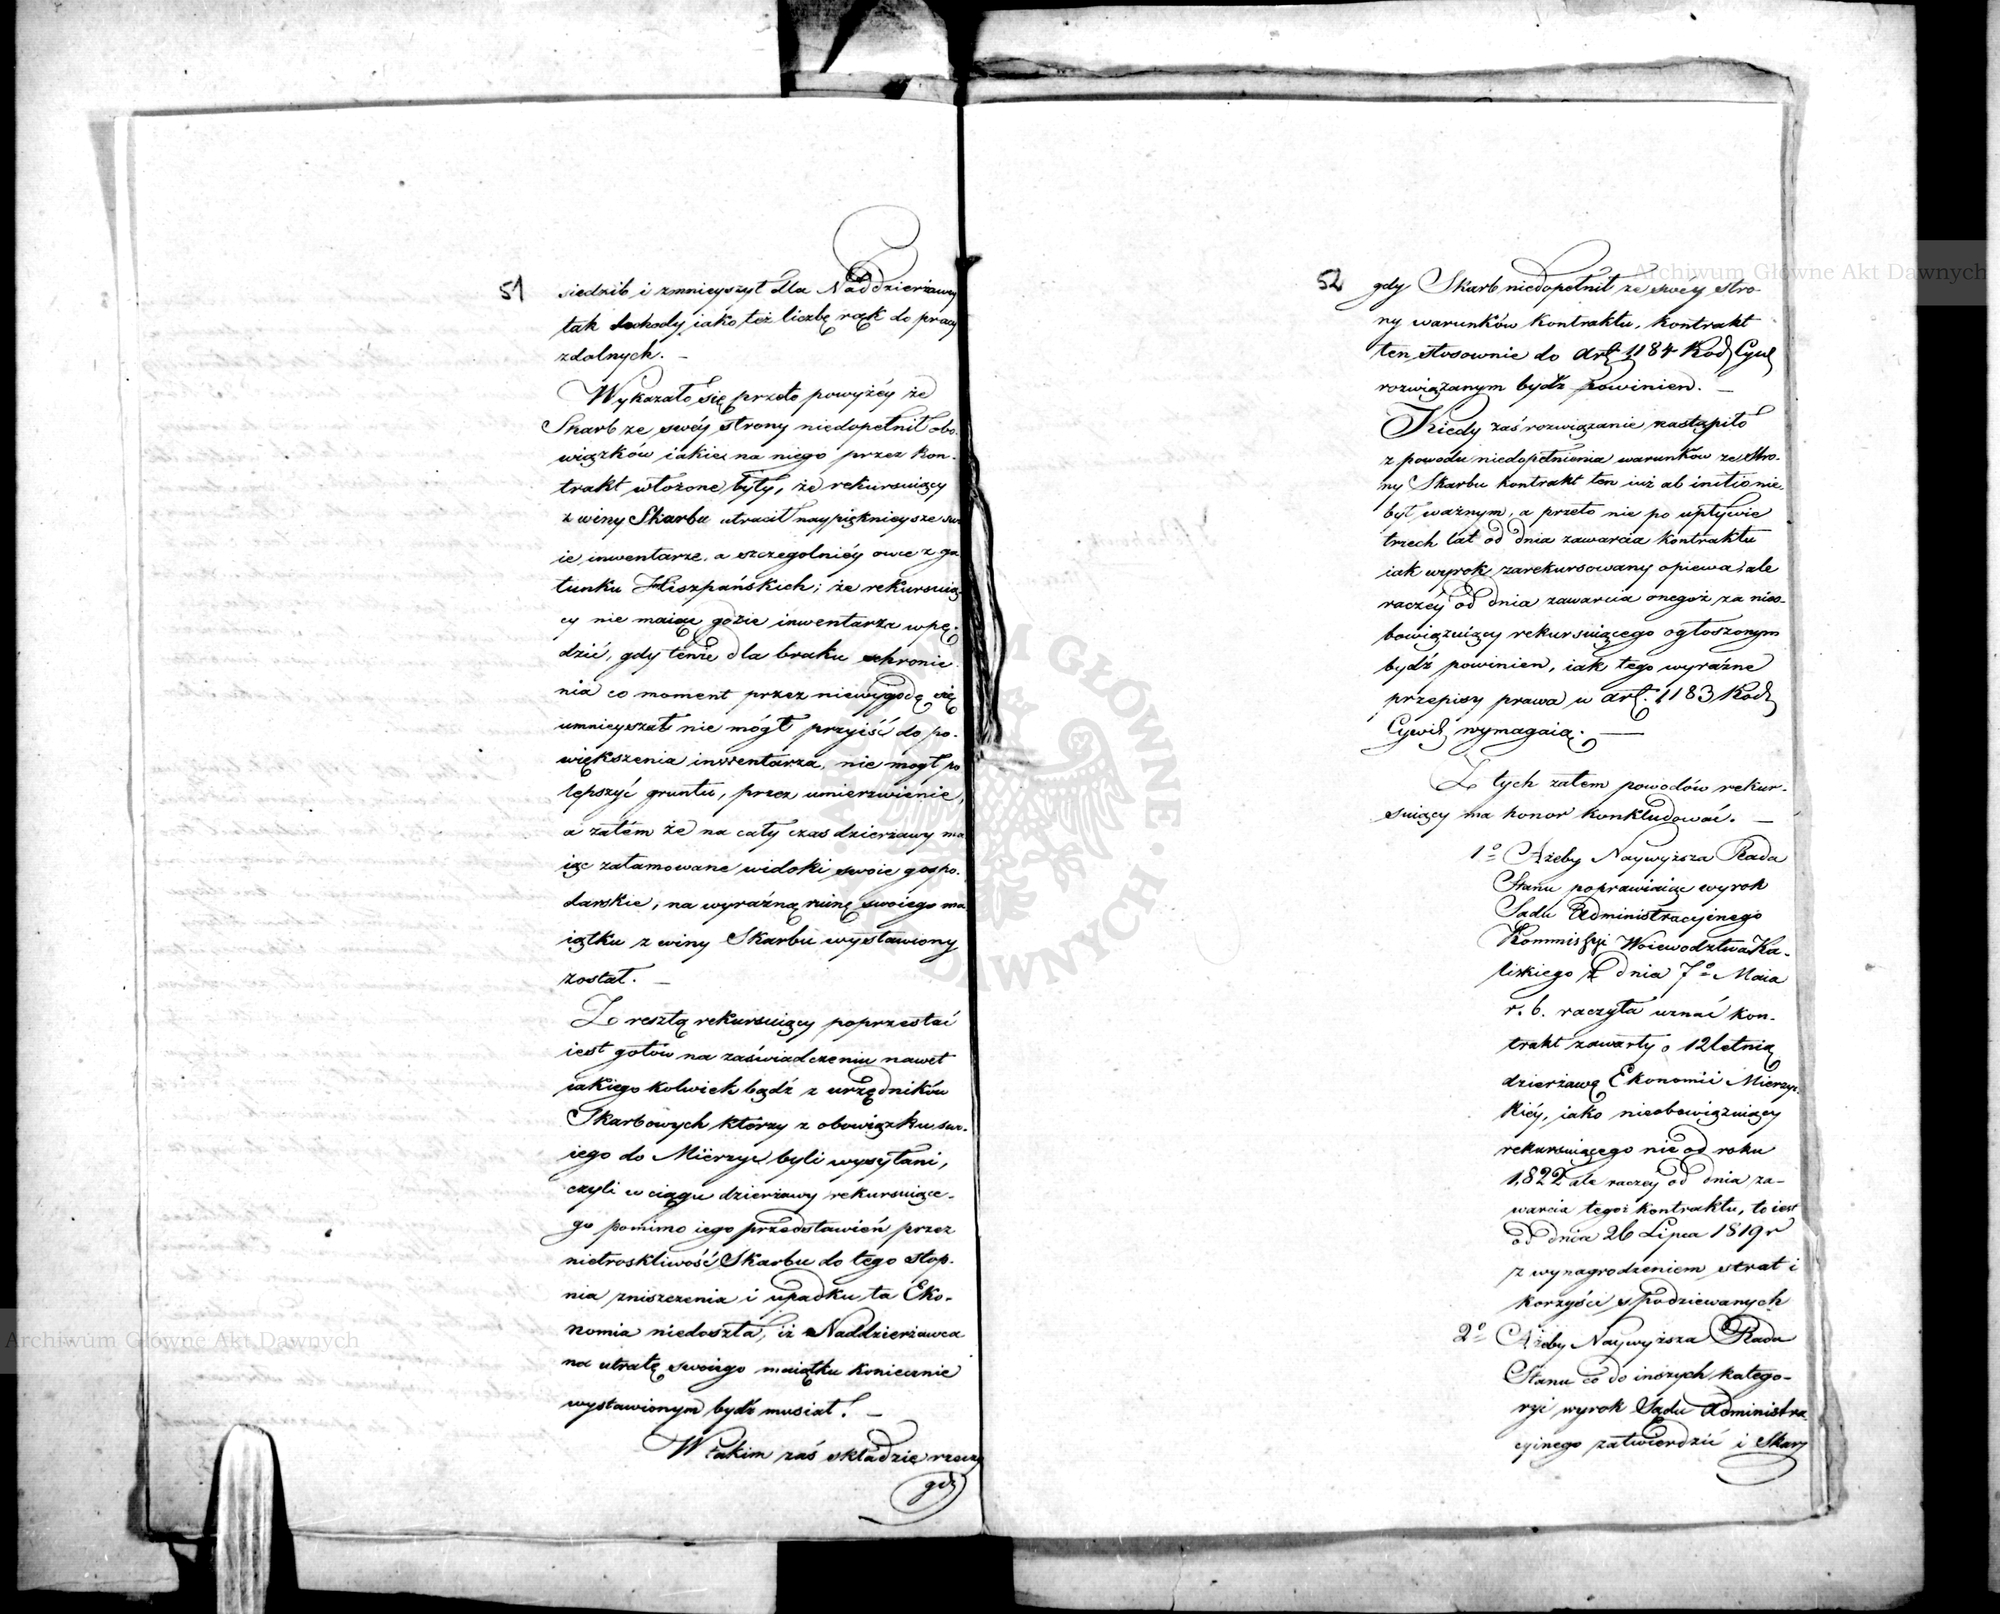 51
siedzib i zmnieyszył dla Naddzierżawcy
tak dochody, iako też liczbę rąk do pracy
zdolnych. —
Wykazało się przeto powyżéy że
Skarb ze swéj strony niedopełnił obo-
wiązków iakie na niego przez kon-
trakt włożone były, że rekursuiący
z winy Skarbu utracił naypięknieysze swo
ie inwentarze, a szczególniéy owce z ga
tunku Hiszpańskich; że rekursuią-
cy nie maiąc gdzie inwentarza wpę-
dzić, gdy tenże dla braku schronie
nia co moment przez niewygodę się
umnieyszał nie mógł przyiść do po-
większenia inwentarza, nie mogł po
lepszyć gruntu, przez umierzwienie,
a zatém że na cały czas dzierżawy ma
iąc załamowane widoki swoie gospo-
darskie, na wyraźną ruinę swoiego ma
iątku z winy Skarbu wystawiony
został. —
Z resztą rekursuiący poprzestać
iest gotów na zaświadczeniu nawet
iakiego kolwiek bądź z urzędników
Skarbowych którzy z obowiązku swo-
iego do Mierzyc byli wysyłani,
czyli w ciągu dzierżawy rekursuiące-
go pomimo iego przedstawień przez
nietroskliwość Skarbu do tego stop-
nia zniszczenia i upadku ta Eko-
nomia niedoszła, iż Naddzierżawca
na utratę swoiego maiątku koniecznie
wystawionym bydź musiał. —
W takim zaś składzie rzeczy
gdy
52
gdy Skarb niedopełnił ze swey stro-
ny warunków kontraktu, kontrakt
ten stosownie do art. 1184 Kod. Cyw.
rozwiązanym bydź powinien. —
Kiedy zaś rozwiązanie nastąpiło
z powodu niedopełnienia warunków ze stro-
ny Skarbu kontrakt ten iuż ab initio nie
był ważnym, a przeto nie po upływie
trzech lat od dnia zawarcia kontraktu
iak wyrok zarekursowany opiewa, ale
raczéy od dnia zawarcia onegoż za nieo-
bowiązuiący rekursuiącego ogłoszonym
bydź powinien, iak tego wyraźne
przepisy prawa w art. 1183 Kod.
Cywil. wymagaią. —
Z tych zatem powodów rekur-
suiący ma honor konkludować. —
1o Ażeby Naywyższa Rada
Stanu poprawiaiąc wyrok
Sądu Administracyinego
Kommissyi Woiewodztwa Ka-
liskiego z dnia 7o Maia
r. b. raczyła uznać kon-
trakt zawarty o 12letnią
dzierżawę Ekonomii Mierzyc-
kiéy, iako nieobowiązuiący
rekursuiącego nie od roku
1822 ale raczey od dnia za-
warcia tegoż kontraktu, to iest
od dnia 26 Lipca 1819 r
z wynagrodzeniem strat i
korzyści spodziewanych
2o Ażeby Naywyższa Rada
Stanu co do inszych katego-
ryi wyrok Sądu Administra
cyinego zatwierdzić i Skarb
Archiwum Główne Akt Dawnych
Archiwum Główne Akt Dawnych
ARCHIWUM GŁÓWNE AKT DAWNYCH